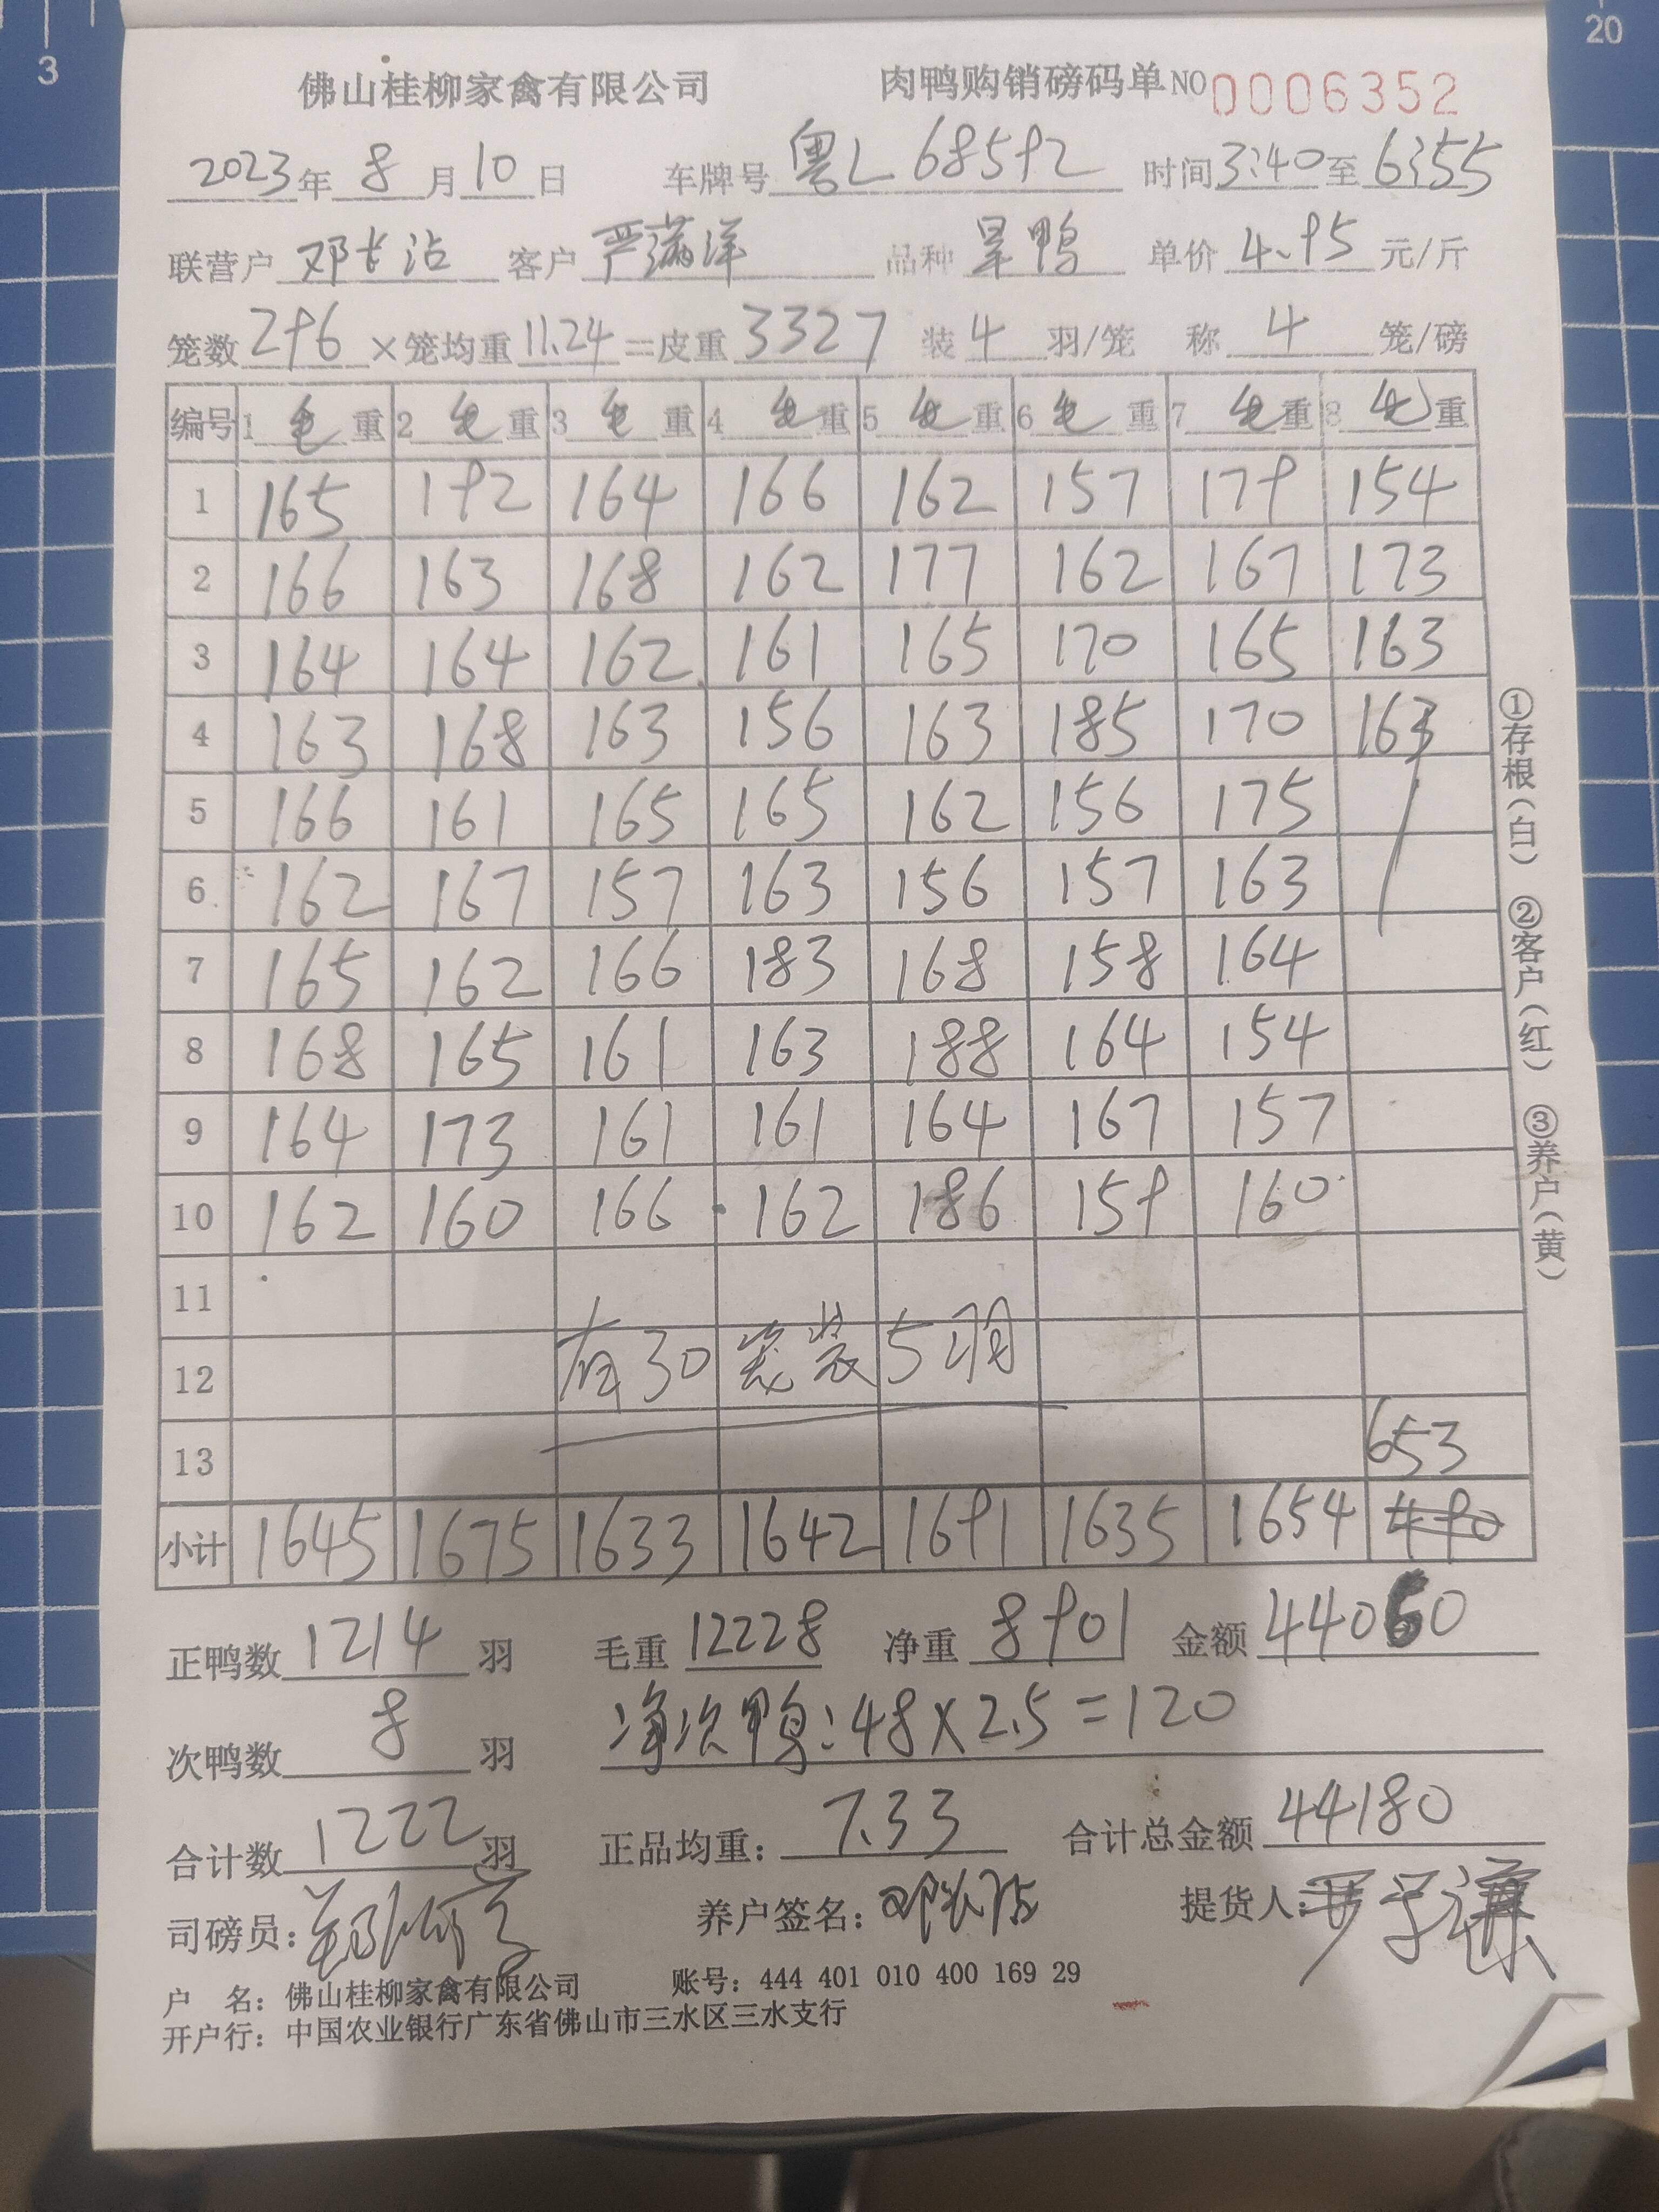 3
20
佛山桂柳家禽有限公司 肉鸭购销磅码单 NO 0006352
2023年 8月10日 车牌号 粤L 68592 时间 3:40 至 6:55
联营户 邓长沾 客户 严满洋 品种 旱鸭 单价 4.95 元/斤
笼数 296 ×笼均重 11.24 =皮重 3327 装 4 羽/笼 称 4 笼/磅
编号 1 毛重 2 毛重 3 毛重 4 毛重 5 毛重 6 毛重 7 毛重 8 毛重
1 165 192 164 166 162 157 179 154
2 166 163 168 162 177 162 167 173
3 164 164 162 161 165 170 165 163
4 163 168 163 156 163 185 170 163
5 166 161 165 165 162 156 175
6 162 167 157 163 156 157 163
7 165 162 166 183 168 158 164
8 168 165 161 163 188 164 154
9 164 173 161 161 164 167 157
10 162 160 166 162 186 159 160
11
12 有30笼装5羽
13 653
小计 1645 1675 1633 1642 1691 1635 1654 490
正鸭数 1214 羽 毛重 12228 净重 8901 金额 44060
次鸭数 8 羽 净次鸭:48×2.5=120
合计数 1222 羽 正品均重: 7.33 合计总金额 44180
司磅员: 养户签名: 提货人:
户 名: 佛山桂柳家禽有限公司 账号: 444 401 010 400 169 29
开户行: 中国农业银行广东省佛山市三水区三水支行
①存根(白) ②客户(红) ③养户(黄)